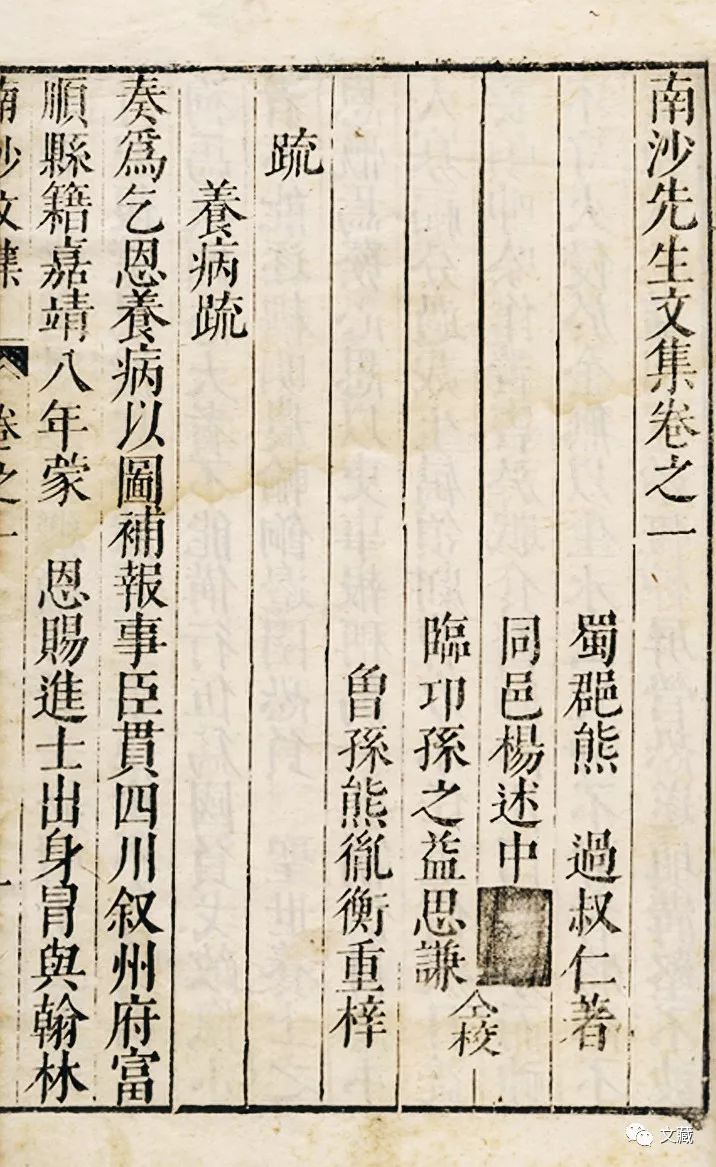 南沙先生文集卷之一
蜀郡熊 過叔仁著
同邑楊述中
臨卭孫之益思謙
仝校
曾孫熊胤衡重梓
疏
養病疏
奏爲乞恩養病以圖補報事臣貫四川叙州府富
順縣籍嘉靖八年蒙 恩賜進士出身冐與翰林
南沙文集 卷之一 一
文藏